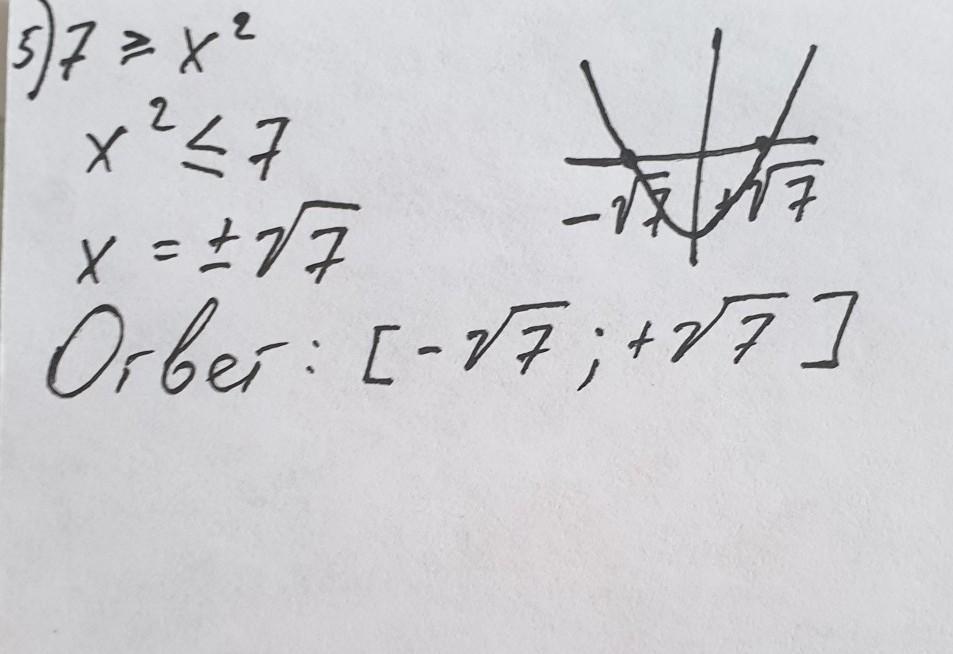 5) 7 ≥ x²
x² ≤ 7
x = ±√7
-√7 +√7
Ответ: [-√7; +√7]